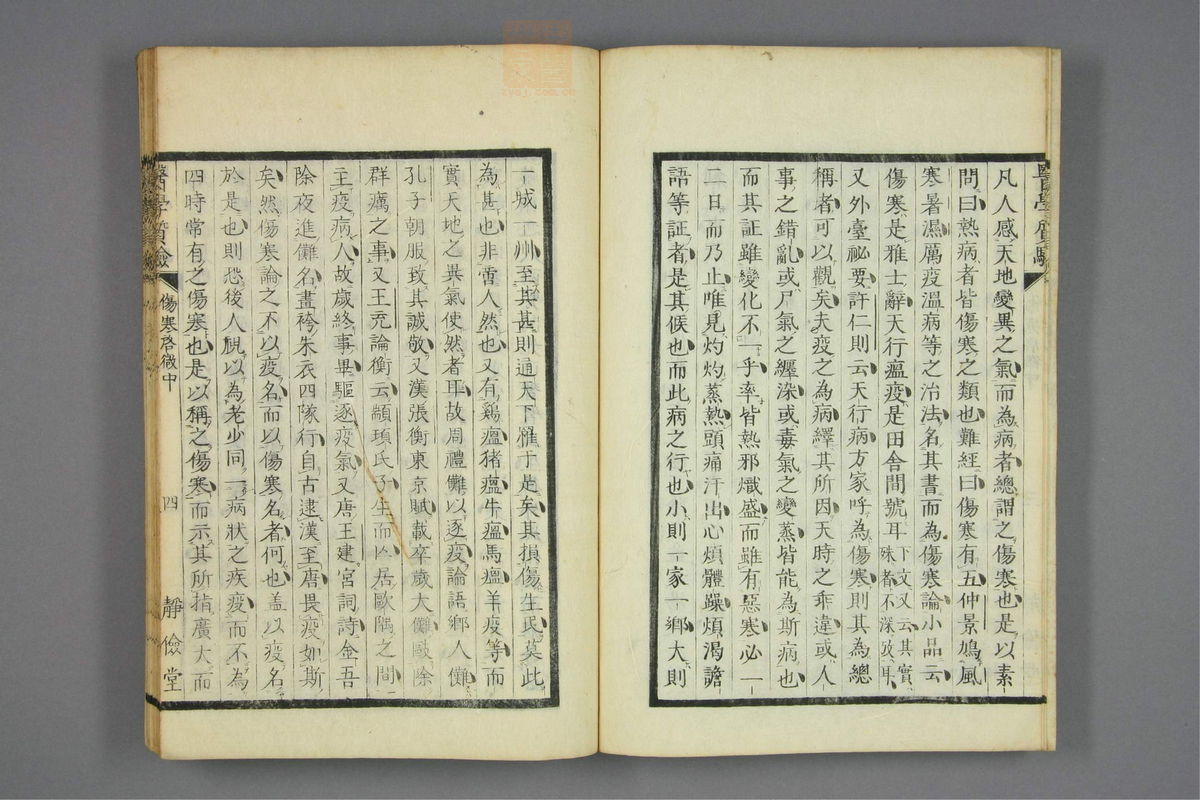 凡人感天地變異之氣而為病者總謂之傷寒也是以素
問曰熱病者皆傷寒之類也難經曰傷寒有五仲景鳩風
寒暑濕厲疫溫病等之治法名其書而為傷寒論小品云
傷寒是雅士辭天行瘟疫是田舍間號耳下文又云其實殊者不深攷耳
又外臺祕要許仁則云天行病方家呼為傷寒則其為總
稱者可以觀矣夫疫之為病繹其所因天時之乖違或人
事之錯亂或尸氣之纏染或毒氣之變蒸皆能為斯病也
而其証雖變化不一乎率皆熱邪熾盛而雖有惡寒必一
二日而乃止唯見灼灼蒸熱頭痛汗出心煩體躁煩渴譫
語等証者是其候也而此病之行也小則一家一鄉大則
一城一州至其甚則通天下罹于是矣其損傷生民莫此
為甚也非啻人然也又有鷄瘟猪瘟牛瘟馬瘟羊疫等而
實天地之異氣使然者耳故周禮儺以逐疫論語鄉人儺
孔子朝服致其誠敬又漢張衡東京賦載卒歲大儺敺除
群癘之事又王充論衡云顓頊氏子生而亡居歐隅之間
主疫病人故歲終事畢驅逐疫氣又唐王建宮詞詩金吾
除夜進儺名畫袴朱衣四隊行自古逮漢至唐畏疫如斯
矣然傷寒論之不以疫名而以傷寒名者何也盖以疫名
於是也則恐後人視以為老少同一病狀之疾疫而不為
四時常有之傷寒也是以稱之傷寒而示其所指廣大而
醫學質驗
傷寒啓微中
四
靜儉堂